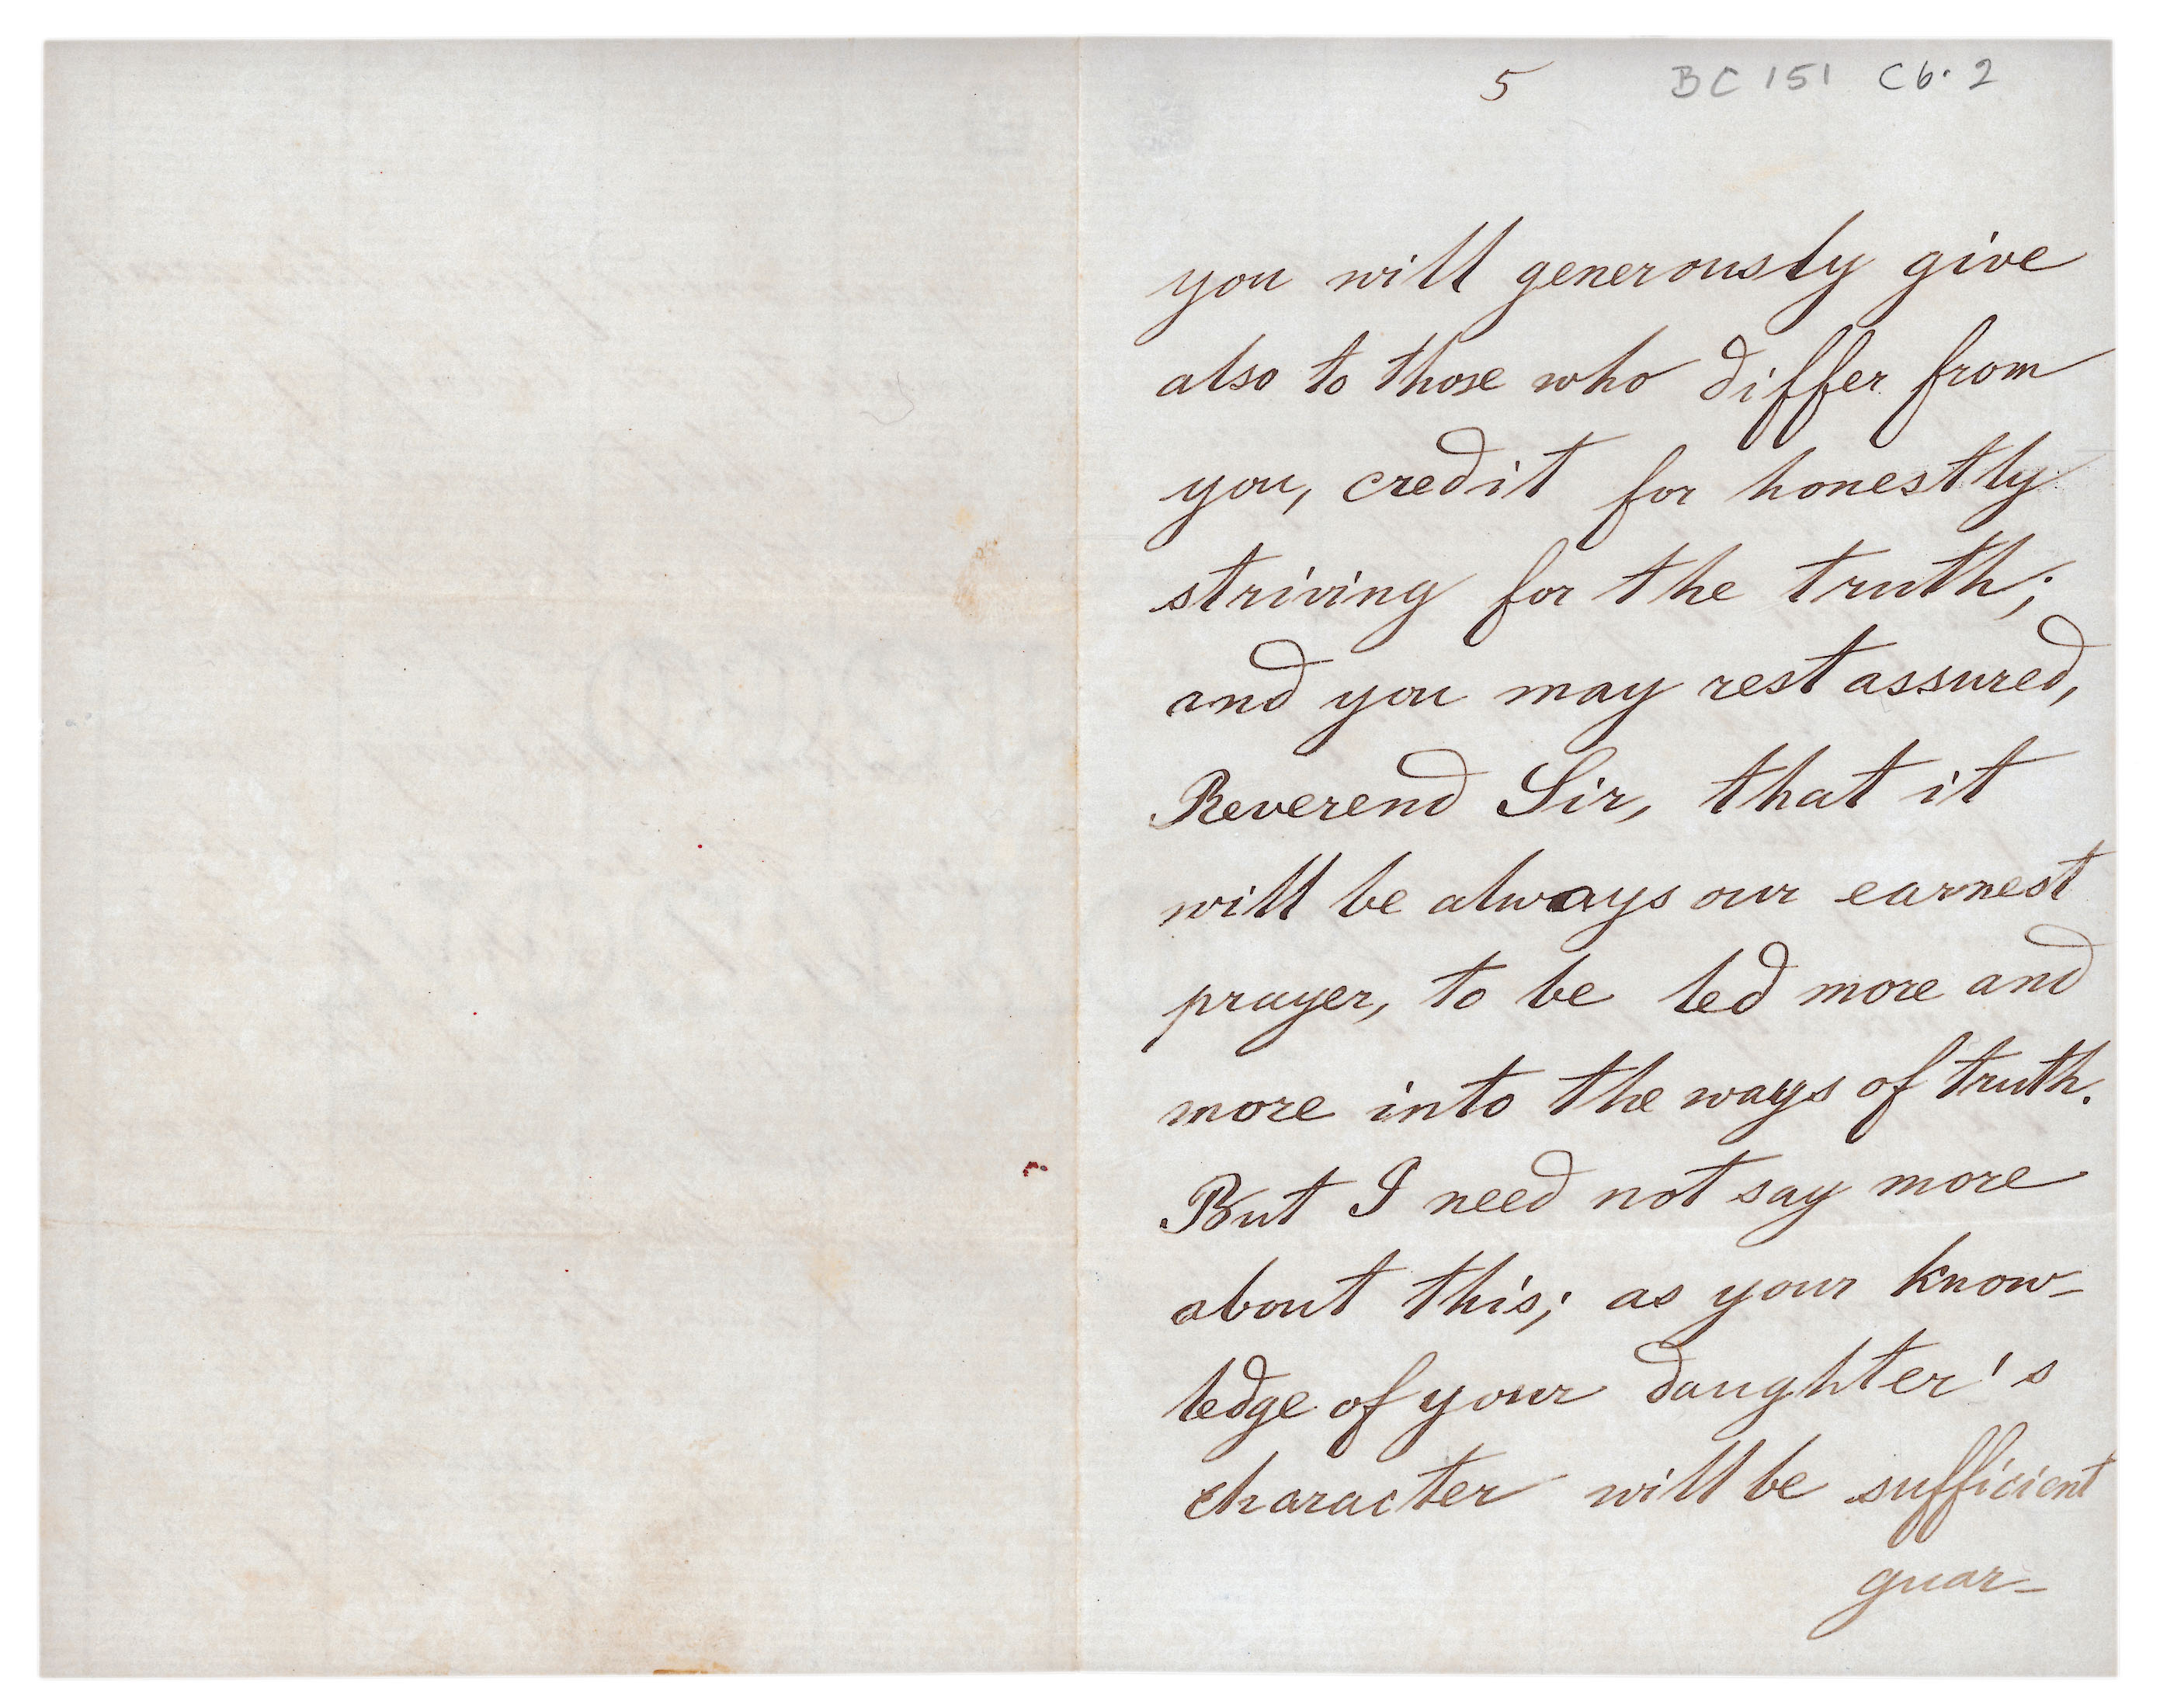 5 BC 151 C6.2
you will generously give
also to those who differ from
you, credit for honestly
striving for the truth;
and you may rest assured,
Reverend Sir, that it
will be always our earnest
prayer, to be led more and
more into the ways of truth.
But I need not say more
about this; as your know-
ledge of your daughter's
character will be sufficient
guar-